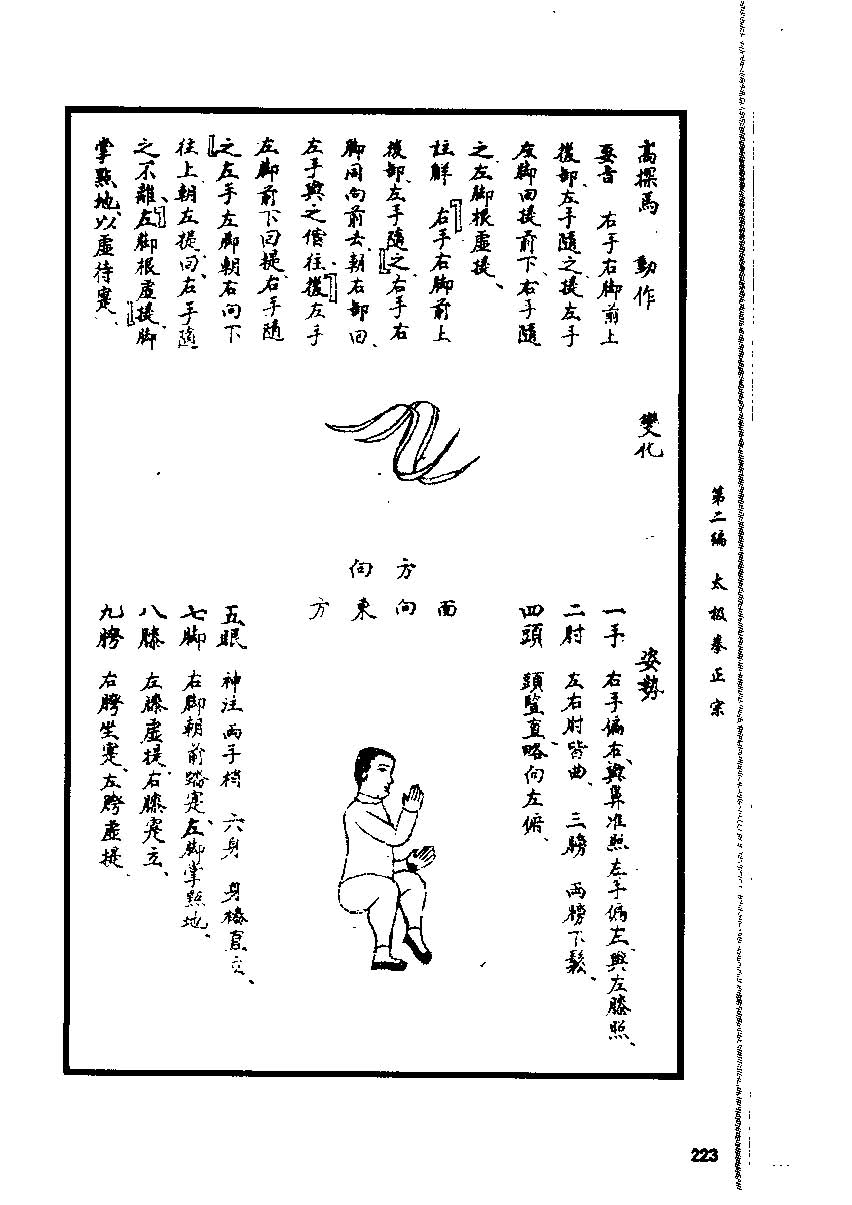 高探馬　動作
要言　右手右脚前上
後卸、左手隨之提左手
左脚回提前下、右手隨
之左脚根虛提、
註解　右手右脚前上
後卸、左手隨之、右手右
脚同向前去、朝右卸回、
左手與之偕往後、左手
左脚前下回提、右手隨
之左手左脚朝右向下
往上朝左提回、右手隨
之不離、左脚根虛提、脚
掌點地、以虛待寔、
變化
方向
面向東方
姿勢
一手　右手偏右、與鼻准照、左手偏左、與左膝照、
二肘　左右肘皆曲、三膀　兩膀下鬆、
四頭　頭豎直、略向左俯、
五眼　神注兩手档　六身　身樁直立、
七脚　右脚朝前踏寔、左脚掌點地、
八膝　左膝虛提、右膝寔立、
九胯　右胯坐寔、左胯虛提、
第二編　太極拳正宗
223